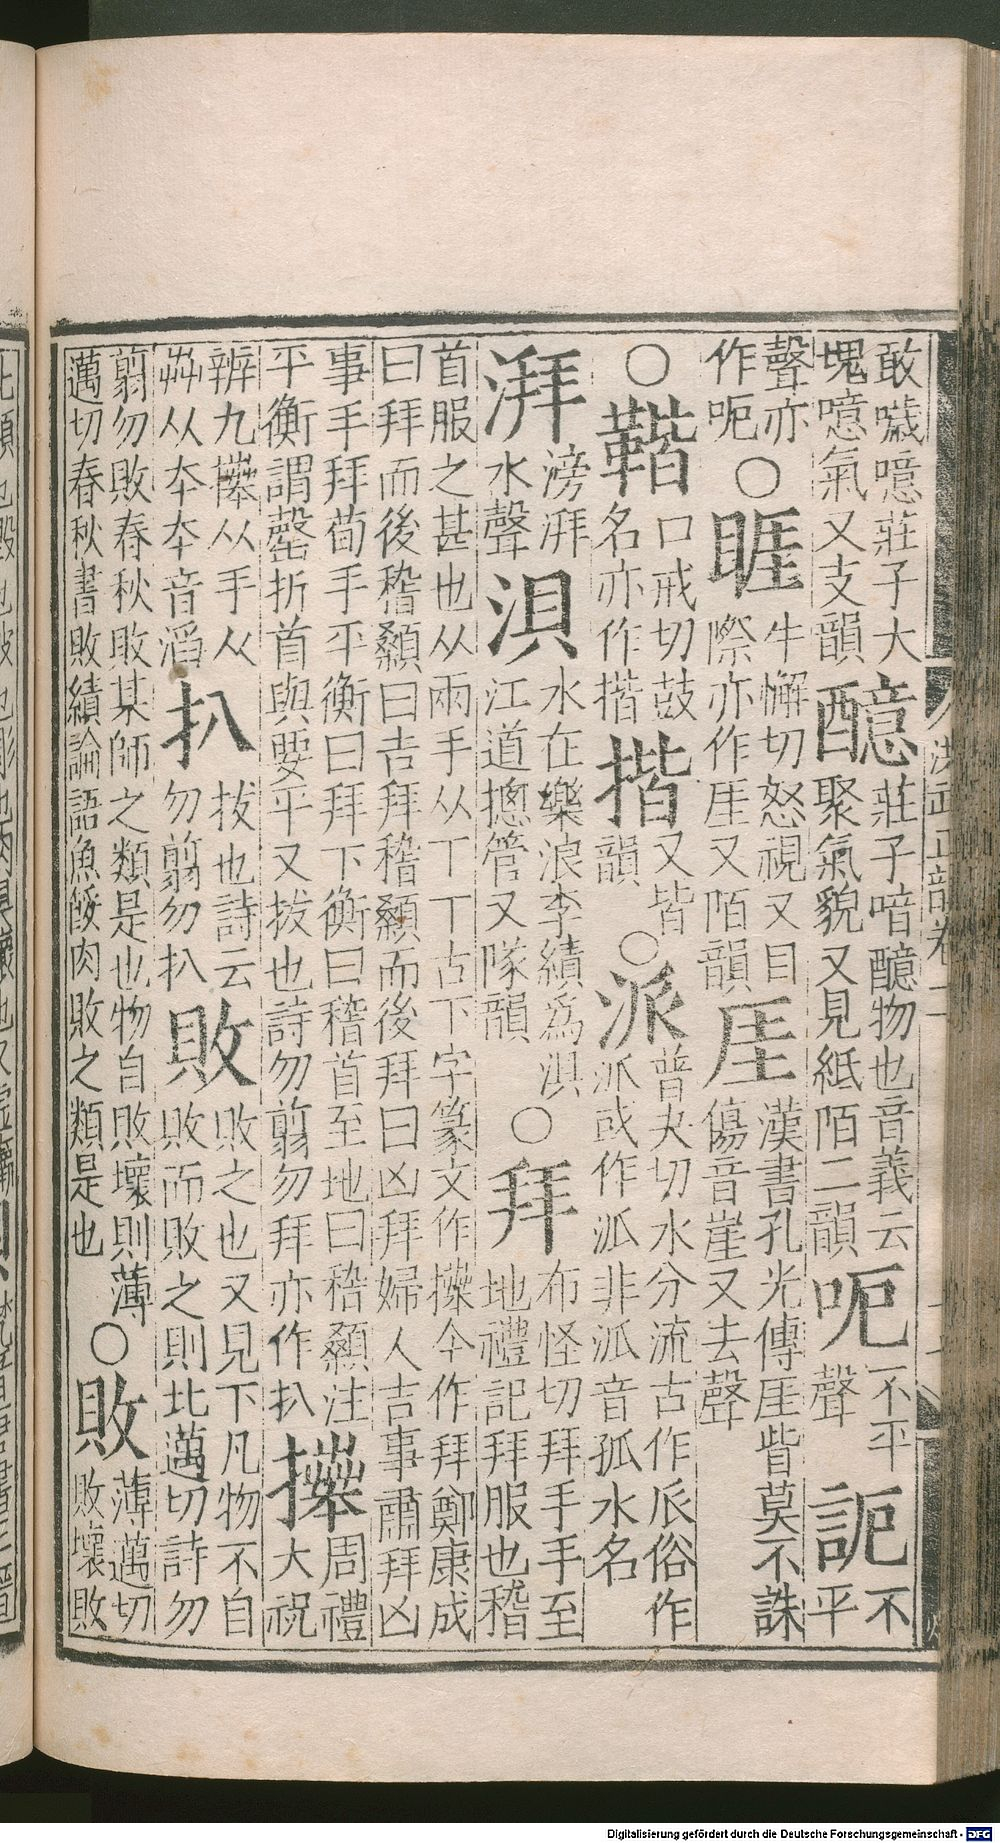 敢噦噫莊子大塊噫氣又支韻 醷 莊子喑醷物也音義云聚氣貌又見紙陌二韻 呃 不平聲 不平
聲亦作呃 ○ 睚 牛懈切怒視又目際亦作厓又陌韻 厓 漢書孔光傳厓眥莫不誅傷音崖又去聲
○ 口戒切鼓名亦作揩 揩 又皆韻 ○ 派 普夬切水分流古作𠂢俗作派或作泒非泒音孤水名
湃 滂湃水聲 浿 水在樂浪李績為浿江道摠管又隊韻 ○ 拜 布怪切拜手手至地禮記拜服也稽
首服之甚也从兩手从丅丅古下字篆文作𢷎今作拜鄭康成
曰拜而後稽顙曰吉拜稽顙而後拜曰凶拜婦人吉事肅拜凶
事手拜荀手平衡曰拜下衡曰稽首至地曰稽顙注平衡謂罄折首與要平又拔也詩勿翦勿拜亦作扒 𢷎 周禮大祝
辨九𢷎从手从𠦪从夲夲音滔 扒 拔也詩云勿翦勿扒 敗 敗之也又見下凡物不自敗而敗之則北邁切詩勿
翦勿敗春秋敗某師之類是也物自敗壞則薄邁切春秋書敗績論語魚餒肉敗之類是也 ○ 敗 薄邁切敗壞敗
洪武正韻卷
Digitalisierung gefördert durch die Deutsche Forschungsgemeinschaft - DFG